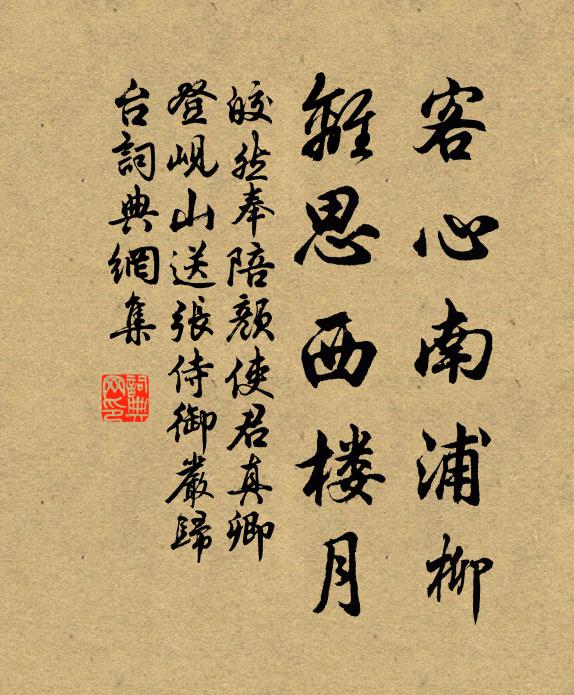 客心南浦柳
離思西楼月
皎然奉陪顏使君真卿
登峴山送張侍御嚴歸
台詞典網集
詞典
网印